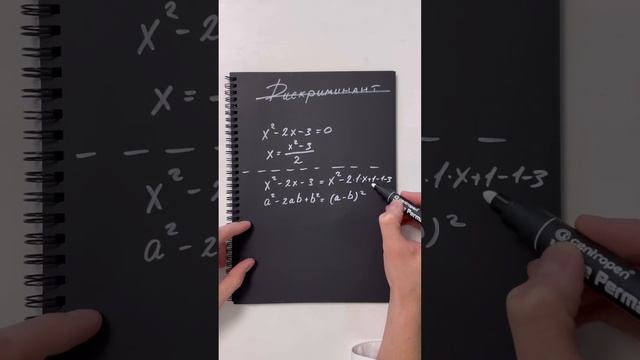 Дискриминант
x² - 2x - 3 = 0
x = x² - 3 / 2
x² - 2x - 3 = x² - 2·1·x+1-1-3
a² - 2ab + b² = (a-b)²
centropen
Perma